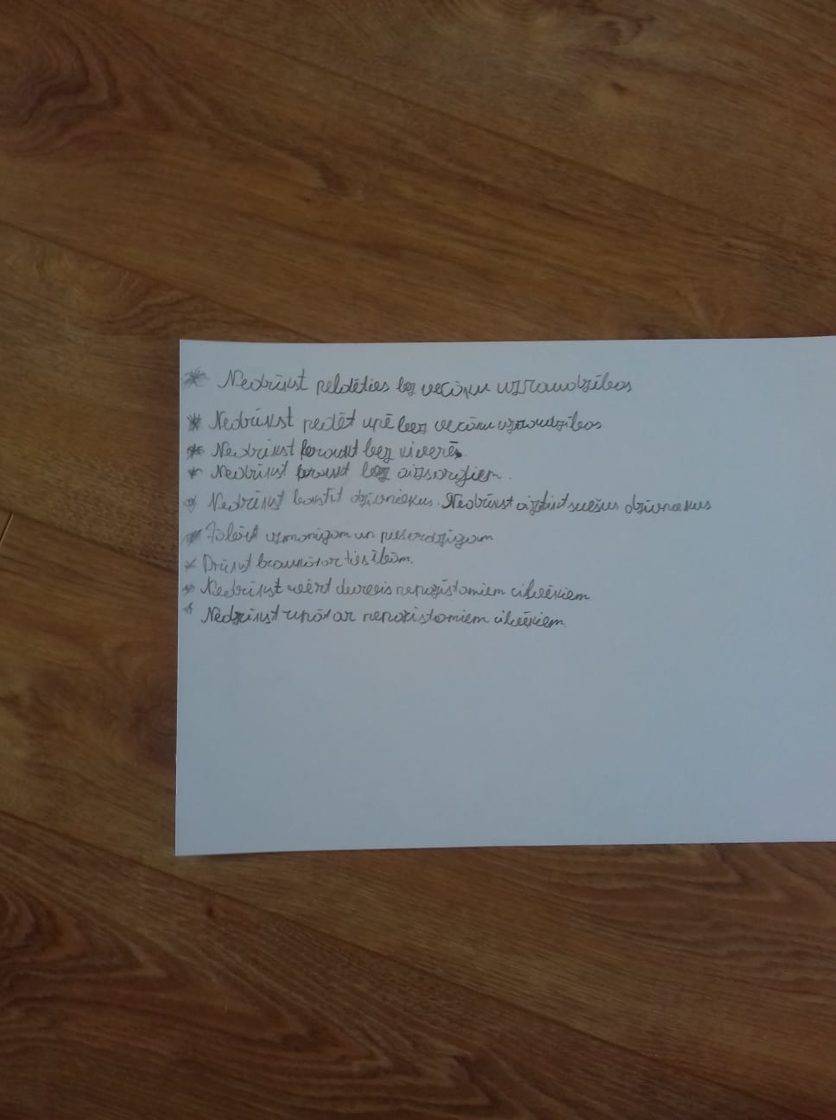 * Nedrīkst peldēties bez vecāku uzraudzības
* Nedrīkst pedēt upē bez vecāku uzraudzības
* Nedrīkst braukt bez ķiverēs
* Nedrīkst braukt bez aizsargiem.
* Nedrīkst kaitit dzīvniekus. Nedrīkst aiztikt svešus dzīvniekus
* Jābūt uzmanīgam un piesardzīgam
* Drīkst braukt ar tiesībām.
* Nedrīkst vērt durvis nepazīstamiem cilvēkiem
* Nedrīkst runāt ar nepazīstamiem cilvēkiem.